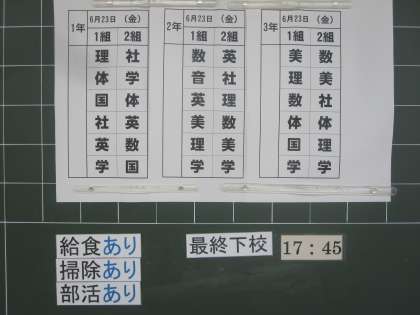 1年 6月23日 (金) 2年 6月23日 (金) 3年 6月23日 (金)
1組 2組 1組 2組 1組 2組
理 社 数 英 美 数
体 学 音 社 理 美
国 体 英 理 数 社
社 英 美 数 体 体
英 数 理 美 国 理
学 国 学 学 学 学
給食あり 最終下校 17:45
掃除あり
部活あり